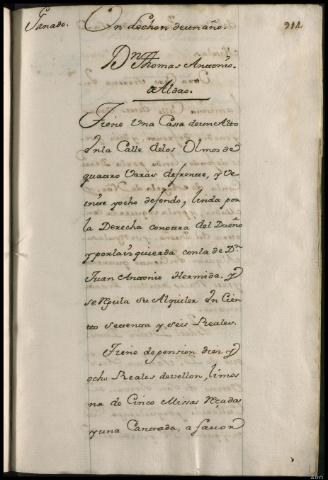 Ganado. Un Lechon de un año. 312
Dn. Thomas Antonio
Aldao.
Tiene Una Cassa de un Alto
en la Calle de los Olmos de
quatro Varas de frente, y Ve
inte y ocho de fondo, linda por
la Derecha con otra del Dueño
y por la izquierda con la de Dn.
Juan Antonio Hermida, y
se regula su Alquiler en Cien
to sesenta y seis Reales.
Tiene de pension diez y
ocho Reales de vellon, limos
na de Cinco Missas Rezadas
y una Cantada, a favor